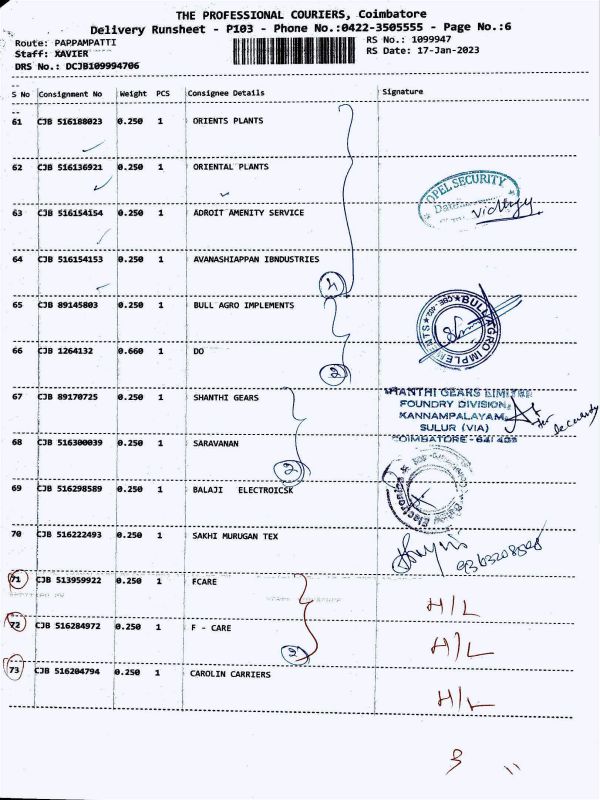 THE PROFESSIONAL COURIERS, Coimbatore
Delivery Runsheet - P103 - Phone No.:0422-3505555 - Page No.:6
Route: PAPPAMPATTI RS No.: 1099947
Staff: XAVIER RS Date: 17-Jan-2023
DRS No.: DCJB109994706
S No Consignment No Weight PCS Consignee Details Signature
61 CJB 516188023 0.250 1 ORIENTS PLANTS
62 CJB 516136921 0.250 1 ORIENTAL PLANTS
OPEL SECURITY
63 CJB 516154154 0.250 1 ADROIT AMENITY SERVICE
64 CJB 516154153 0.250 1 AVANASHIAPPAN IBNDUSTRIES
4
65 CJB 89145803 0.250 1 BULL AGRO IMPLEMENTS
BULL AGRO IMPLEMENTS
66 CJB 1264132 0.660 1 DO
2
67 CJB 89170725 0.250 1 SHANTHI GEARS
SHANTHI GEARS LIMITED
FOUNDRY DIVISION,
KANNAMPALAYAM,
SULUR (VIA)
COIMBATORE
68 CJB 516300039 0.250 1 SARAVANAN
2
69 CJB 516298589 0.250 1 BALAJI ELECTROICSK
70 CJB 516222493 0.250 1 SAKHI MURUGAN TEX
71 CJB 513959922 0.250 1 FCARE
H/L
72 CJB 516284972 0.250 1 F - CARE
H/L
2
73 CJB 516204794 0.250 1 CAROLIN CARRIERS
H/L
3 "